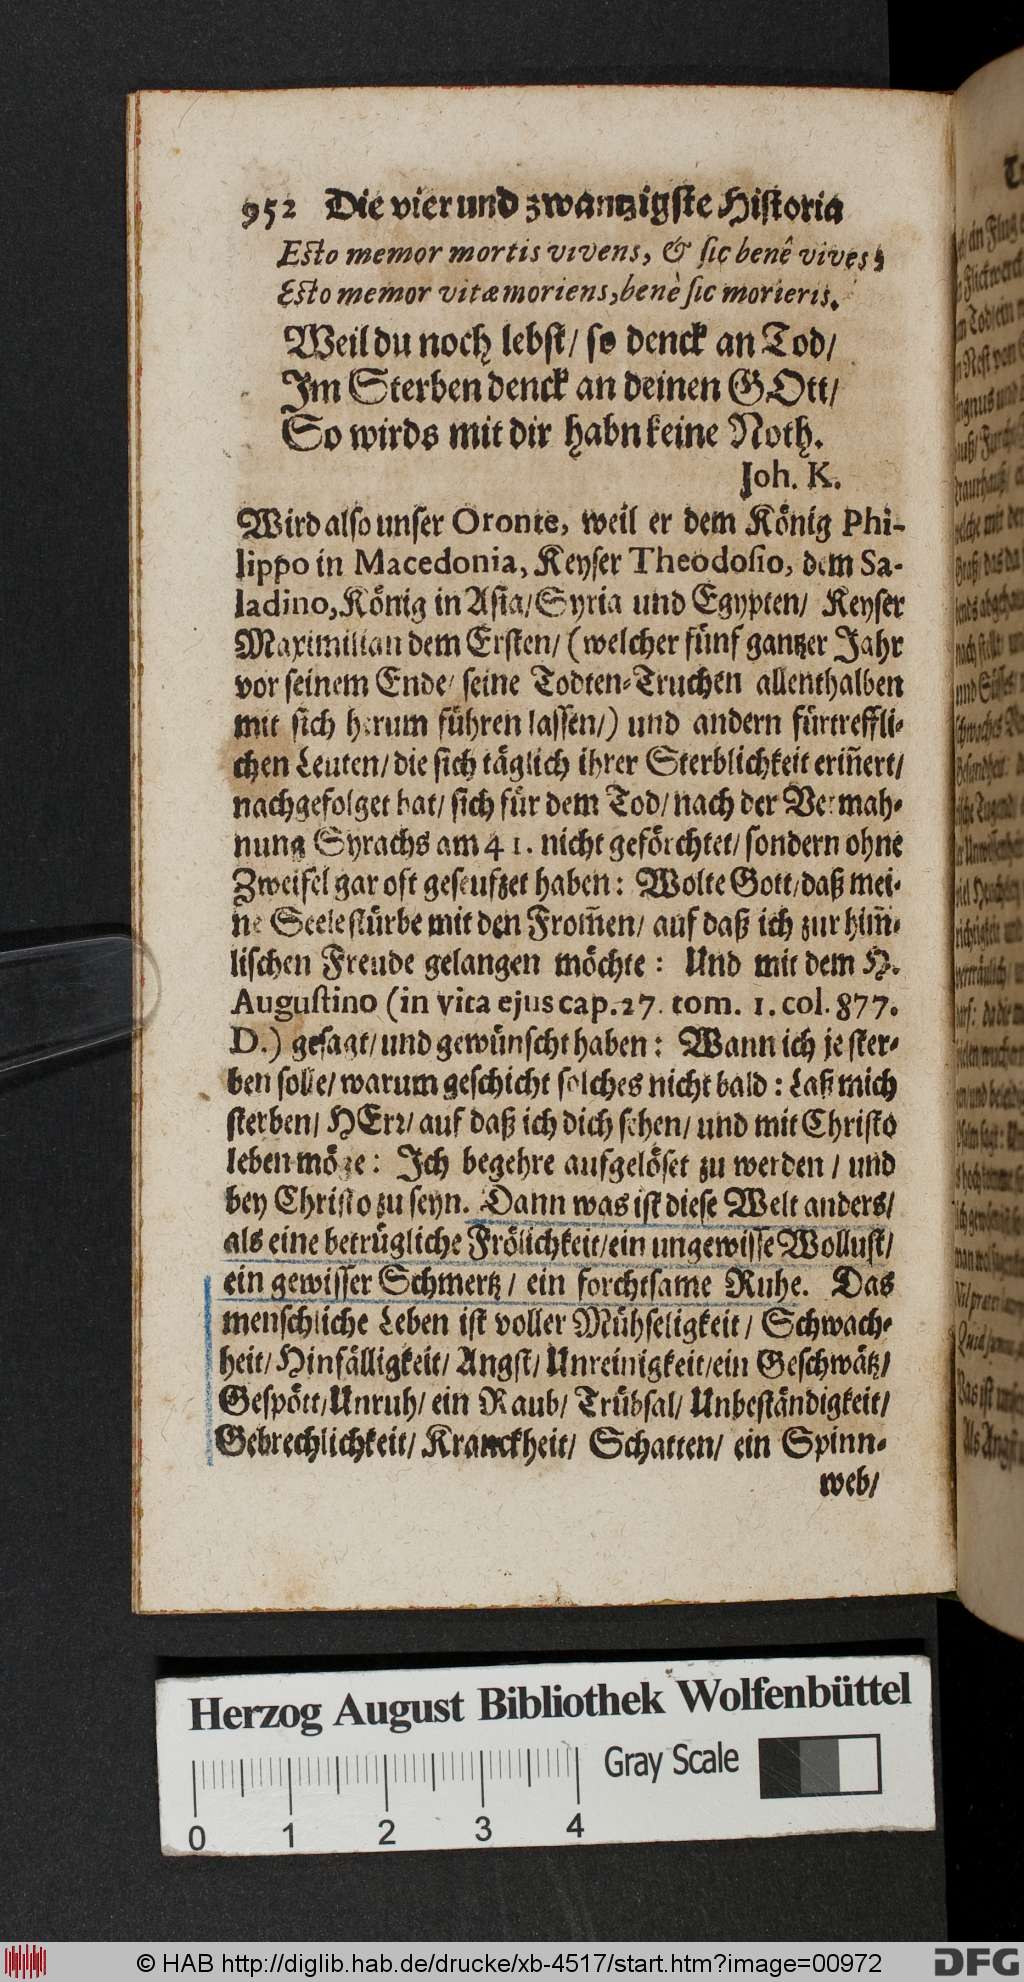 952 Die vier und zwantzigste Historia
Esto memor mortis vivens, & sic benê vives;
Esto memor vitæ moriens, benè sic morieris.
Weil du noch lebst/ so denck an Tod/
Im Sterben denck an deinen GOtt/
So wirds mit dir habn keine Noth.
Joh. K.
Wird also unser Oronte, weil er dem König Phi-
lippo in Macedonia, Keyser Theodosio, dem Sa-
ladino, König in Asia/ Syria und Egypten/ Keyser
Maximilian dem Ersten/ (welcher fünf gantzer Jahr
vor seinem Ende/ seine Todten-Truchen allenthalben
mit sich herum führen lassen/) und andern fürtreffli-
chen Leuten/ die sich täglich ihrer Sterblichkeit eriñert/
nachgefolget hat/ sich für dem Tod/ nach der Vermah-
nung Syrachs am 41. nicht geförchtet/ sondern ohne
Zweifel gar oft geseufzet haben: Wolte Gott/ daß mei-
ne Seele stürbe mit den From̃en/ auf daß ich zur him̃-
lischen Freude gelangen möchte: Und mit dem H.
Augustino (in vita ejus cap. 27. tom. 1. col. 877.
D.) gesagt/ und gewünscht haben: Wann ich je ster-
ben solle/ warum geschicht solches nicht bald: Laß mich
sterben/ HErr/ auf daß ich dich sehen/ und mit Christo
leben möge: Ich begehre aufgelöset zu werden / und
bey Christo zu seyn. Dann was ist diese Welt anders/
als eine betrügliche Frölichkeit/ ein ungewisse Wollust/
ein gewisser Schmertz / ein forchtsame Ruhe. Das
menschliche Leben ist voller Mühseligkeit / Schwach-
heit/ Hinfälligkeit/ Angst/ Unreinigkeit/ ein Geschwätz/
Gespött/ Unruh/ ein Raub/ Trübsal/ Unbeständigkeit/
Gebrechlichkeit/ Kranckheit/ Schatten/ ein Spinn-
web/
Herzog August Bibliothek Wolfenbüttel
Gray Scale
0 1 2 3 4
© HAB http://diglib.hab.de/drucke/xb-4517/start.htm?image=00972
DFG